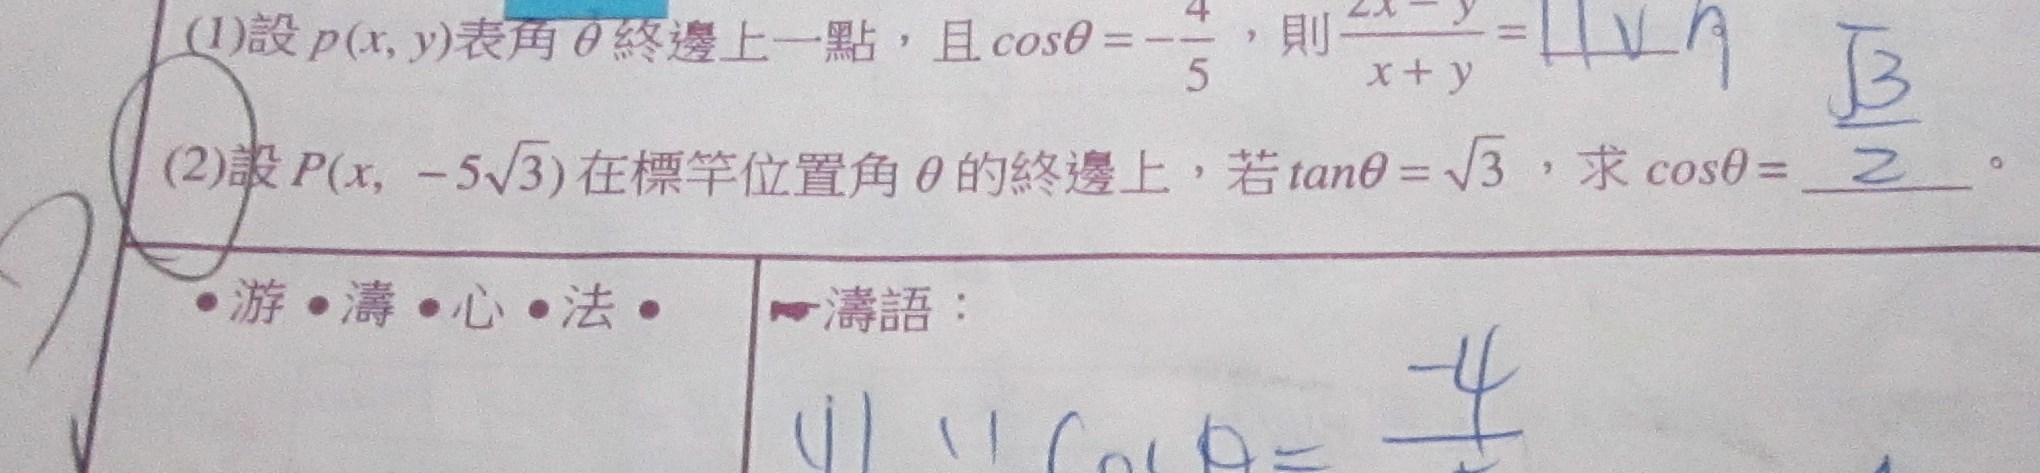 (1)設 p(x, y)表角 θ 終邊上一點，且 cosθ = -4/5，則 (2x - y)/(x + y) =
(2)設 P(x, -5√3) 在標竿位置角 θ 的終邊上，若 tanθ = √3，求 cosθ = √3/2。
•游•濤•心•法•
☛濤語：
-4